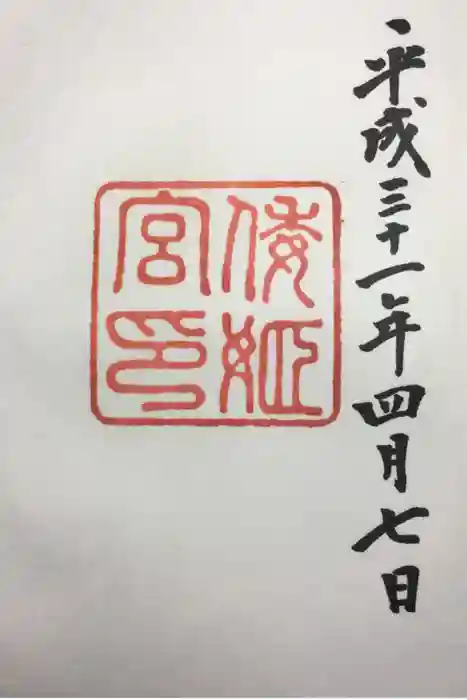 平成三十一年四月七日
倭姫
宮印